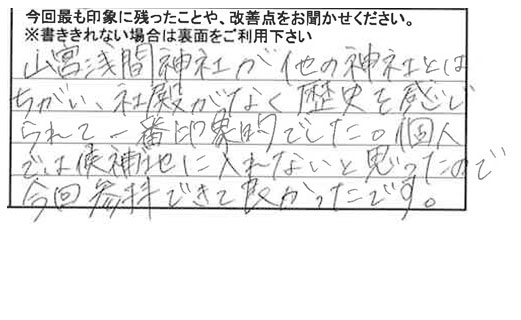 今回最も印象に残ったことや、改善点をお聞かせください。
※書ききれない場合は裏面をご利用下さい
山宮浅間神社が他の神社とは
ちがい、社殿がなく歴史を感じ
られて一番印象的でした。個人
では候補地に入れないと思ったので
今回参拝できて良かったです。